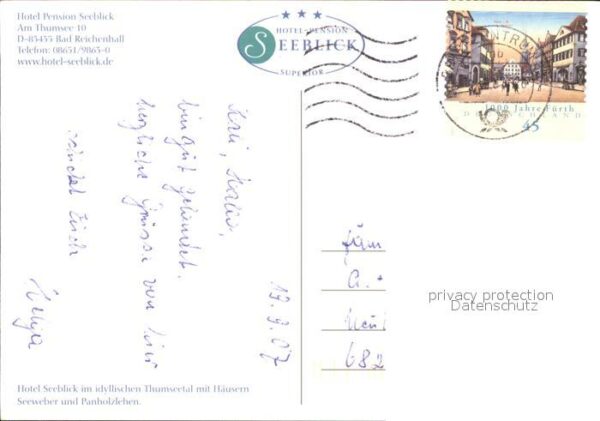 Hotel Pension Seeblick
Am Thumsee 10
D-83435 Bad Reichenhall
Telefon: 08651/9863-0
www.hotel-seeblick.de
HOTEL-PENSION
SEEBLICK
SUPERIOR
1000 Jahre Fürth
DEUTSCHLAND
45
19.9.07
bin gut gelandet.
herzliche Grüsse von hier
Euch
Helga
682
privacy protection
Datenschutz
Hotel Seeblick im idyllischen Thumseetal mit Häusern
Seeweber und Panholzlehen.